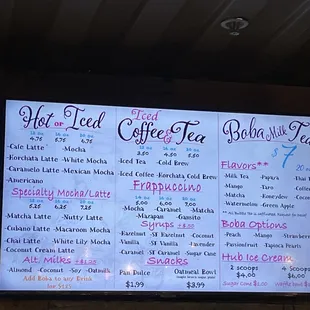 Hot or Iced
12 oz 16 oz 20 oz
4.75 5.75 6.75
-Cafe Latte -Mocha
-Horchata Latte -White Mocha
-Caramelo Latte -Mexican Mocha
-Americano
Specialty Mocha/Latte
12 oz 16 oz 20 oz
5.25 6.25 7.25
-Matcha Latte -Nutty Latte
-Cubano Latte -Macaroon Mocha
-Chai Latte -White Lily Mocha
-Coconut Cream Latte
Alt. Milks +$1.00
-Almond -Coconut -Soy -Oatmilk
Add Boba to any Drink
for $1.75
Iced
Coffee & Tea
12 oz 16 oz 20 oz
3.50 4.50 5.50
-Iced Tea -Cold Brew
-Iced Coffee -Horchata Cold Brew
Frappuccino
5.00 6.00 7.00
-Mocha -Caramel -Matcha
-Marapan -Gansito
Syrups
-Hazelnut -SF Hazelnut -Coconut
-Vanilla -SF Vanilla -Lavender
-Caramel -SF Caramel -Sugar Cane
Snacks
Pan Dulce Oatmeal Bowl
$1.99 $3.99
Boba Milk Tea
$7
Flavors** 20
-Milk Tea -Papaya -Thai
-Mango -Taro -Coffee
-Matcha -Honeydew
-Watermelon -Green Apple
Boba Options
-Peach -Mango
-Passionfruit -Tapioca Pearls
Hub Ice Cream
2 scoops 4 Scoops
$4.00 $6.00